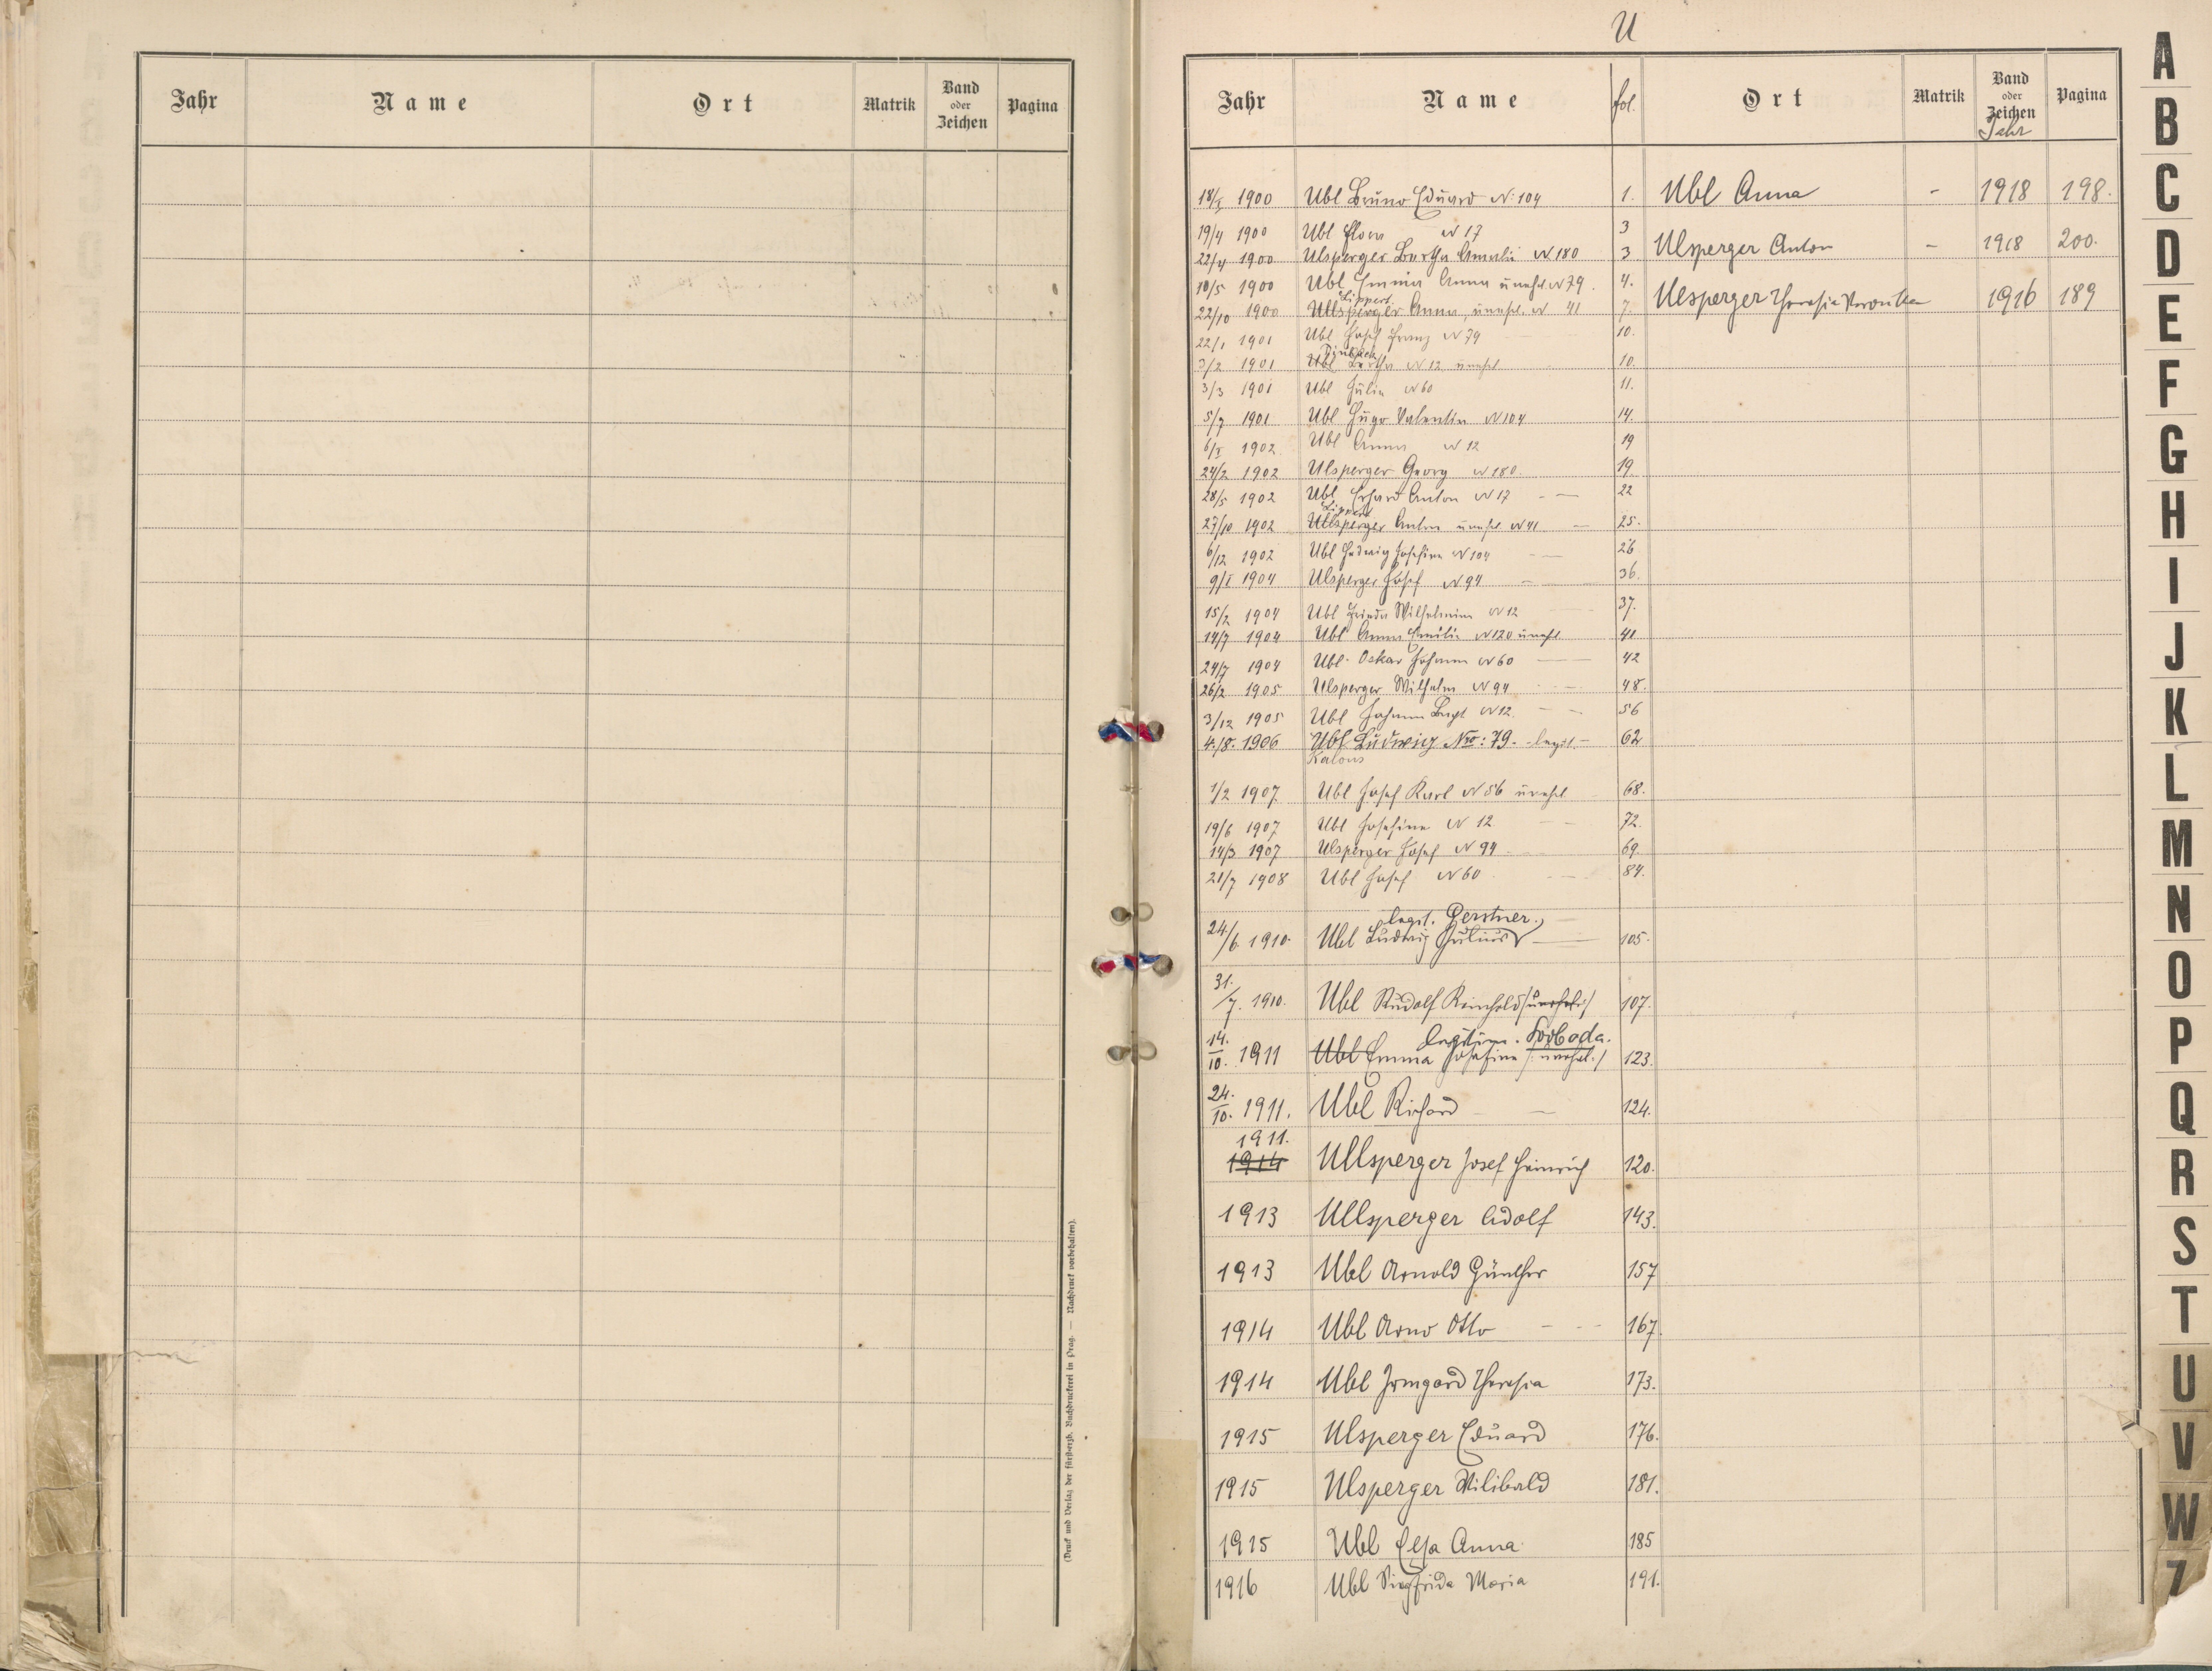 Jahr Name Ort Matrik Band oder Zeichen Pagina
(Druck und Verlag der fürsterzb. Buchdruckerei in Prag. — Nachdruck vorbehalten).
U
Jahr Name fol. Ort Matrik Band oder Zeichen Jahr Pagina
18/I 1900 Ubl Bruno Eduard N: 104 1. Ubl Anna - 1918 198.
19/4 1900 Ubl N 17 3
22/4 1900 Ulsperger Bertha Amalie N 180 3 Ulsperger Anton - 1918 200.
10/5 1900 Ubl Emma Anna unehl. N 79. 4.
Lippert
22/10 1900 Ullsperger Anna, unehl. N 41 7. Ulsperger Theresia Veronika 1916 189
22/1 1901 Ubl Josef Franz N 79 10.
3/2 1901 Ubl Bertha N 12 unehl. 10.
3/3 1901 Ubl Julie N 60 11.
5/7 1901 Ubl Hugo Valentin N 104 14.
6/I 1902. Ubl Anna N 12 19
24/2 1902 Ulsperger Georg N 180. 19.
28/5 1902 Ubl Erhard Anton N 17 - — 22
Lippert
27/10 1902 Ullsperger Anton unehl. N 41 — 25.
6/12 1902 Ubl Hedwig Josefine N 104 26
9/I 1904 Ulsperger Josef N 94 36.
15/2 1904 Ubl Frieda Wilhelmine N 12 37.
14/7 1904 Ubl Anna Emilie N 120 unehl. 41
24/7 1904 Ubl Oskar Johann N 60 — 42
26/2 1905 Ulsperger Wilhelm N 94 48.
3/12 1905 Ubl Johann N 12. 56
4./8. 1906 Ubl Ludwig Nro: 79. legit. 62
Kalous
1/2 1907 Ubl Josef Karl N 56 unehl. 68.
19/6 1907 Ubl Josefine N 12 72.
14/3 1907 Ulsperger Josef N 94 69
21/7 1908 Ubl Josef N 60 84.
legit. Gerstner.
24./6. 1910. Ubl Ludwig Julius — 105.
31./7. 1910. Ubl Rudolf Reinhold /unehel:/ 107.
legitim. Svoboda.
14./10. 1911 Ubl Emma Josefine /:unehel.:/ 123.
24./10. 1911. Ubl Richard — 124.
1911.
1914 Ullsperger Josef Heinrich 120.
1913 Ullsperger Adolf 143.
1913 Ubl Arnold Günther 157
1914 Ubl Arno Otto 167.
1914 Ubl Irmgard Theresia 173.
1915 Ulsperger Eduard 176.
1915 Ulsperger Wilibald 181.
1915 Ubl Elsa Anna 185
1916 Ubl Siegfrida Maria 191.
A
B
C
D
E
F
G
H
I
J
K
L
M
N
O
P
Q
R
S
T
U
V
W
Z